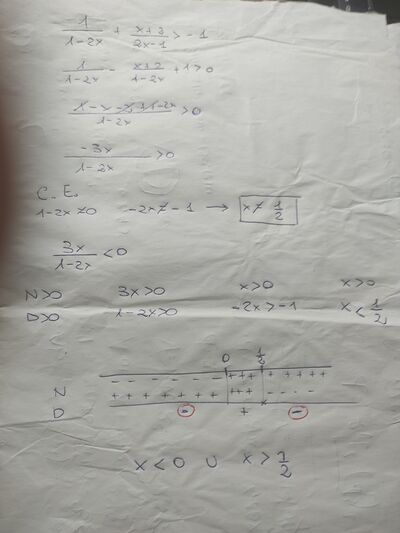 1/(1-2x) + (x+2)/(2x-1) > -1
1/(1-2x) - (x+2)/(1-2x) + 1 > 0
(1-x-2+1-2x)/(1-2x) > 0
-3x/(1-2x) > 0
C.E.
1-2x ≠ 0 -2x ≠ -1 → x ≠ 1/2
3x/(1-2x) < 0
N>0 3x>0 x>0 x>0
D>0 1-2x>0 -2x>-1 x<1/2
0 1/2
N - - - - - - +++ + + + + +
D + + + + + + + +++ - - - -
- + -
x<0 ∪ x>1/2